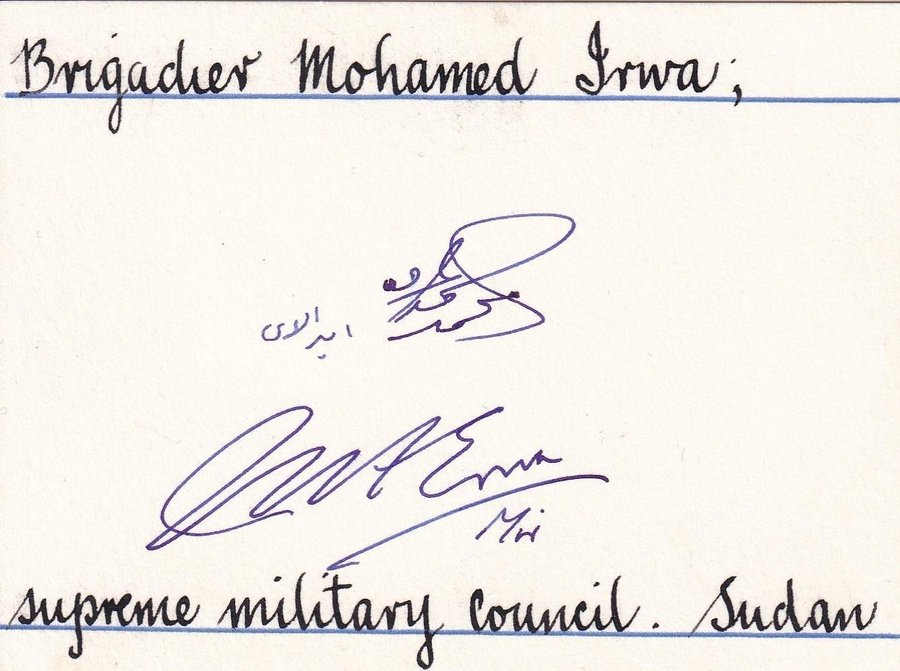 Brigadier Mohamed Irwa;
محمد
Erwa
supreme military council. Sudan